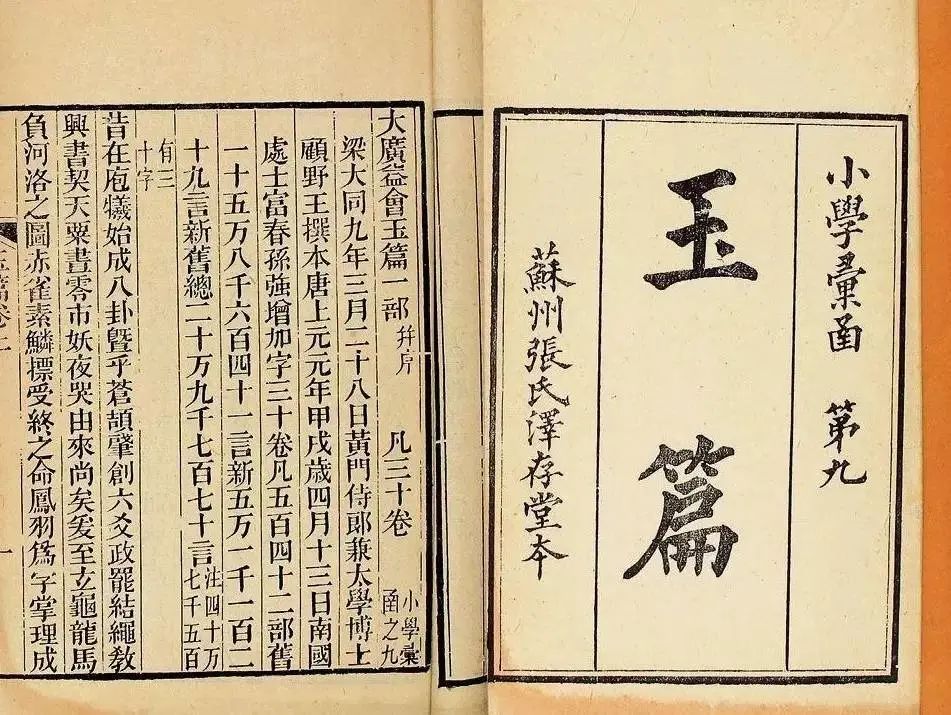 小學彙函　第九
玉篇
蘇州張氏澤存堂本
大廣益會玉篇一部 并序　凡三十卷 小學彙函之九
梁大同九年三月二十八日黃門侍郎兼太學博士
顧野王撰本唐上元元年甲戌歲四月十三日南國
處士富春孫強增加字三十卷凡五百四十二部舊
一十五万八千六百四十一言新五万一千一百二
十九言新舊總二十万九千七百七十言 注四十万七千五百
有三十字
昔在庖犧始成八卦暨乎蒼頡肇創六爻政罷結繩教
興書契天粟晝零市妖夜哭由來尚矣爰至玄龜龍馬
負河洛之圖赤雀素鱗標受終之命鳳羽爲字掌理成
玉篇卷上
一